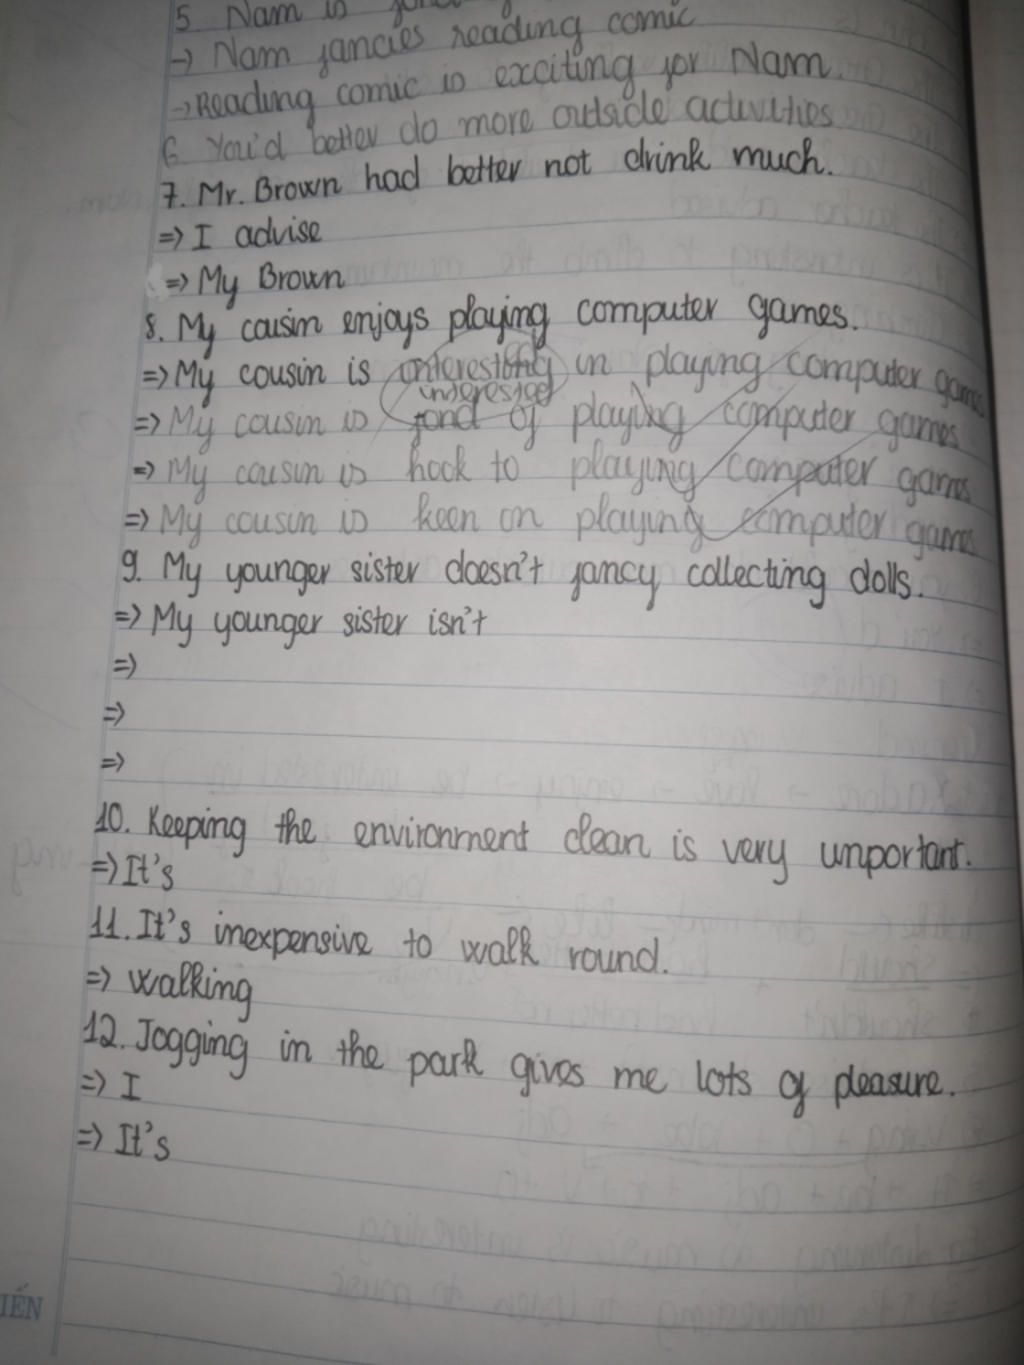 5. Nam is
→ Nam fancies reading comic
→ Reading comic is exciting for Nam.
6. You'd better do more outside activities
7. Mr. Brown had better not drink much.
=> I advise
=> My Brown
8. My cousin enjoys playing computer games.
=> My cousin is interesting in playing computer games
interested
=> My cousin is fond of playing computer games
=> My cousin is hook to playing computer games
=> My cousin is keen on playing computer games
9. My younger sister doesn't fancy collecting dolls.
=> My younger sister isn't
=>
=>
=>
10. Keeping the environment clean is very unportant.
=> It's
11. It's inexpensive to walk round.
=> Walking
12. Jogging in the park gives me lots of pleasure.
=> I
=> It's
IẾN